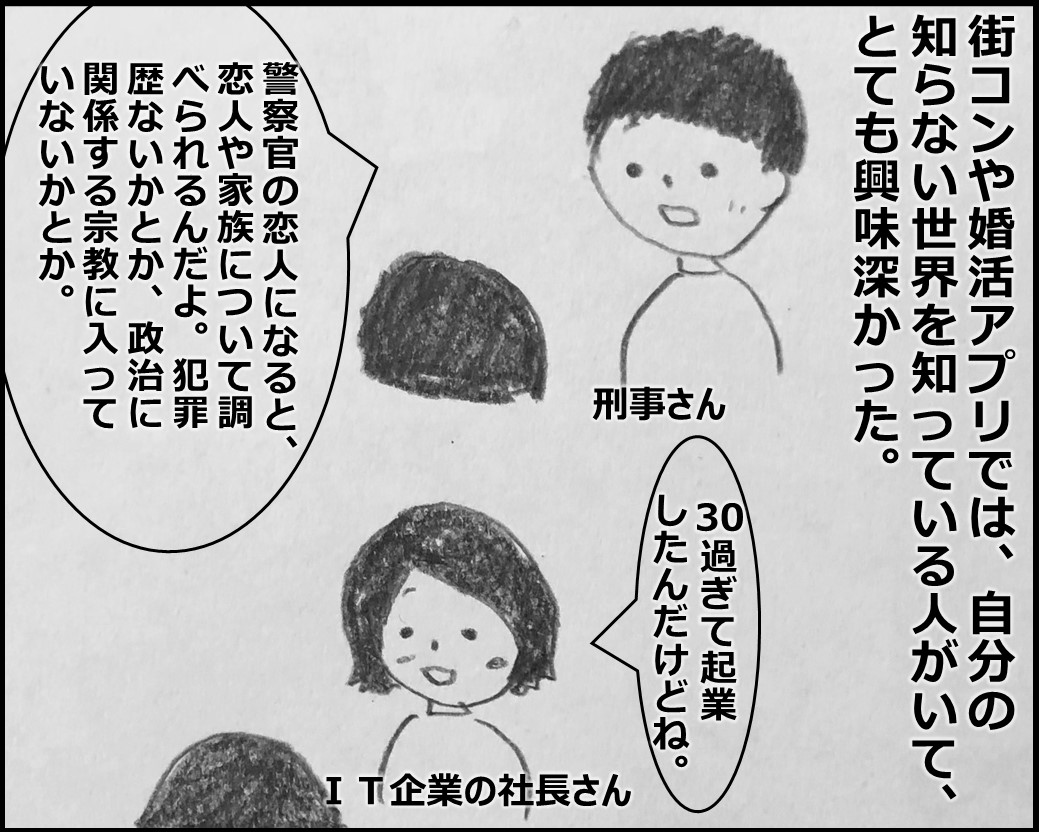 街コンや婚活アプリでは、自分の
知らない世界を知っている人がいて、
とても興味深かった。
警察官の恋人になると、
恋人や家族について調
べられるんだよ。犯罪
歴ないかとか、政治に
関係する宗教に入って
いないかとか。
刑事さん
30過ぎて起業
したんだけどね。
ＩＴ企業の社長さん